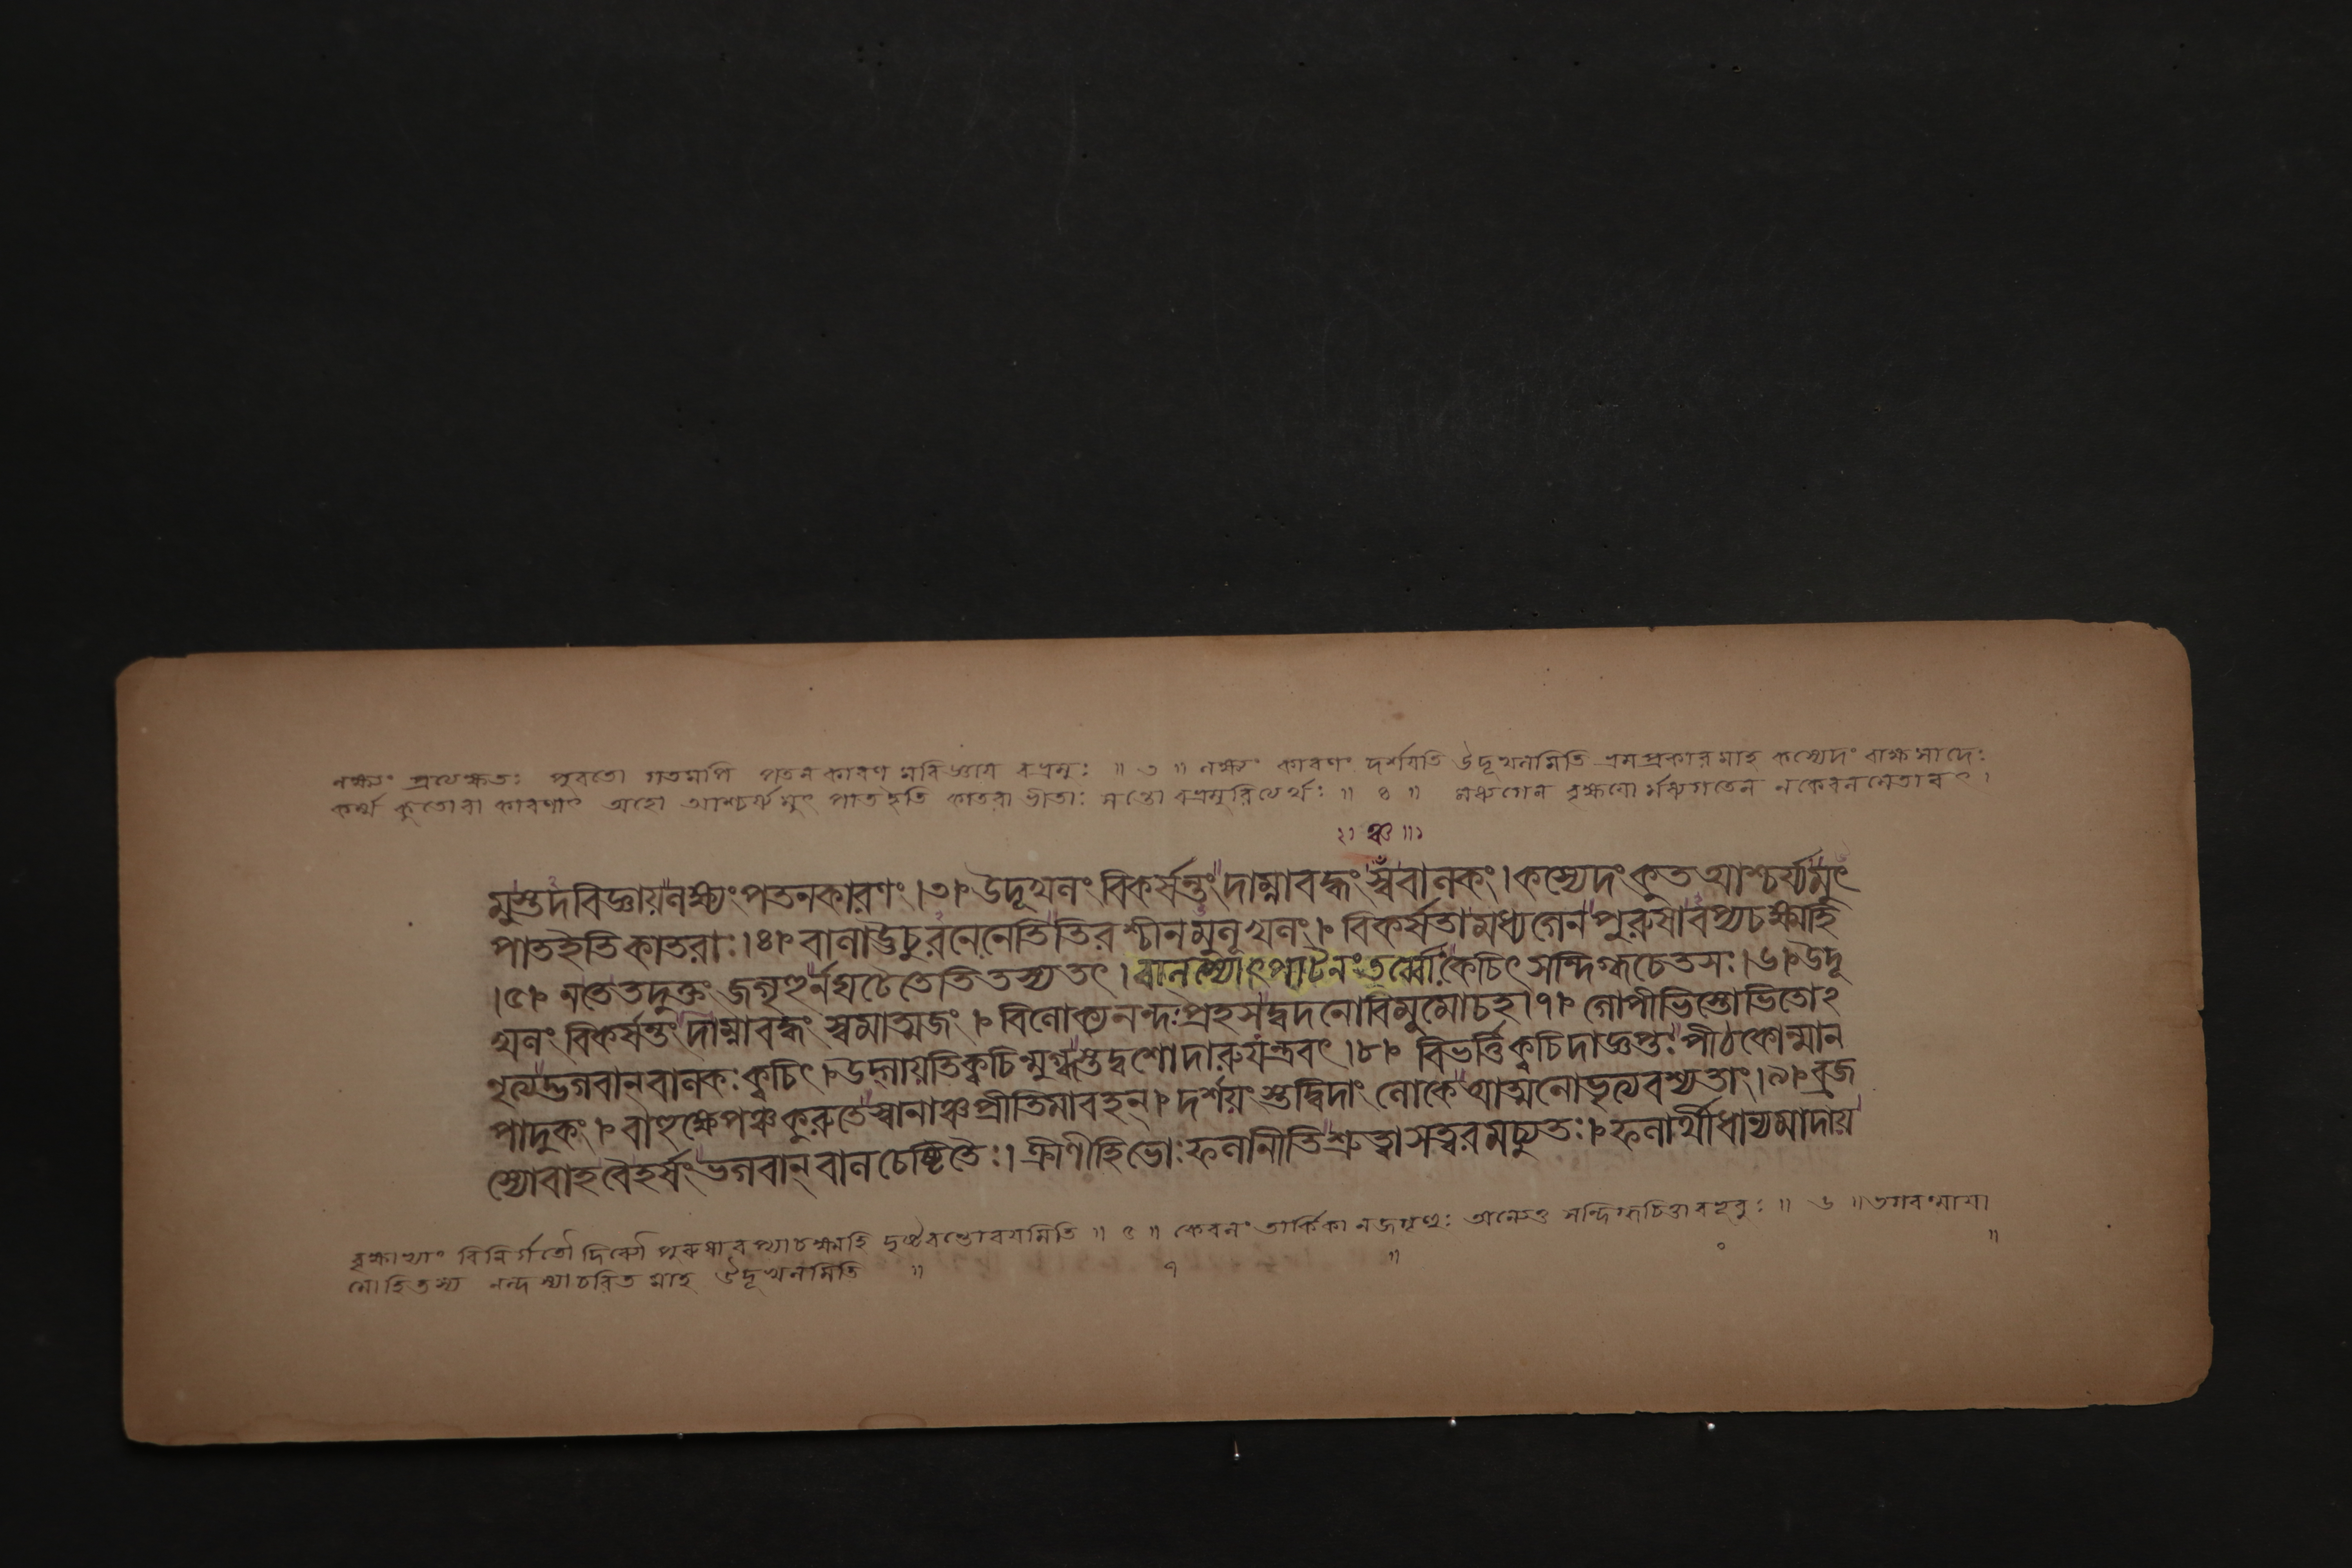 লক্ষ্যং প্রত্যক্ষতঃ পুরতো গতমপি পতন কারণ মবিজ্ঞায় বভ্রমুঃ ॥ ৩ ॥ লক্ষ্যং কারণং দর্শয়তি উদূখলমিতি ভ্রমপ্রকারমাহ কস্যেদং রাক্ষসাদেঃ
কর্ম্ম কুতোবা কারণাৎ অহো আশ্চর্য্যমুৎ পাতইতি কাতরা ভীতাঃ সন্তো বভ্রমুরিত্যর্থঃ ॥ ৪ ॥ মধ্যগেন বৃক্ষয়ো র্মধ্যগতেন নকেবলমেতাবৎ।
২১ ঞ্চ ॥১
মুস্তদবিজ্ঞায়লক্ষ্যং পতনকারণং।৩। উদূখলং বিকর্ষন্তং দাম্নাবদ্ধং স্বঁবালকং। কস্যেদংকুত আশ্চর্য্যমুৎ
পাতইতিকাতরাঃ।৪। বালাউচুরনেনেতিতিরশ্চীনমুলূখলং। বিকর্ষতামধ্যগেন পুরুষাবপ্যচক্ষ্মহি
।৫। নতেতদুক্তং জগৃহুর্নঘটেতেতিতস্যতৎ। বালস্যোৎপাটনংতর্ব্বোঃকেচিৎ সন্দিগ্ধচেতসঃ।৬। উদূ
খলং বিকর্ষন্তং দাম্নাবদ্ধং স্বমাত্মজং। বিলোক্যনন্দঃপ্রহসদ্বদনোবিমুমোচহ।৭। গোপীভিস্তোভিতোঽ
নৃত্যদ্ভগবান্ বালকঃক্বচিৎ। উদ্গায়তিক্বচিন্মুগ্ধস্তদ্বশোদারুযন্ত্রবৎ।৮। বিভর্ত্তিক্বচিদাজ্ঞপ্তঃ পীঠকোন্মান
পাদুকং। বাহুক্ষেপঞ্চকুরুতেস্বানাঞ্চপ্রীতিমাবহন্। দর্শয়ংস্তদ্বিদাং লোকে আত্মনোভৃত্যবশ্যতাং।৯। ব্রজ
স্যোবাহবৈহর্ষং ভগবান্ বালচেষ্টিতৈঃ। ক্রীণীহিভোঃফলানীতিশ্রুত্বাসত্বরমচ্যুতঃ। ফলার্থীধান্যমাদায়
বৃক্ষাভ্যাং বিনির্গতৌ দিব্যৌ পুরুষাবপ্যচক্ষ্মহি দৃষ্টবন্তোবয়মিতি ॥ ৫ ॥ কেবলং তার্কিকা নজগৃহুঃ অন্যেতু সন্দিগ্ধচিত্তাবভূবুঃ ॥ ৬ ॥ ভগবন্মায়া
মোহিতস্য নন্দস্যাচরিত মাহ উদূখলমিতি ॥ ৭ ॥